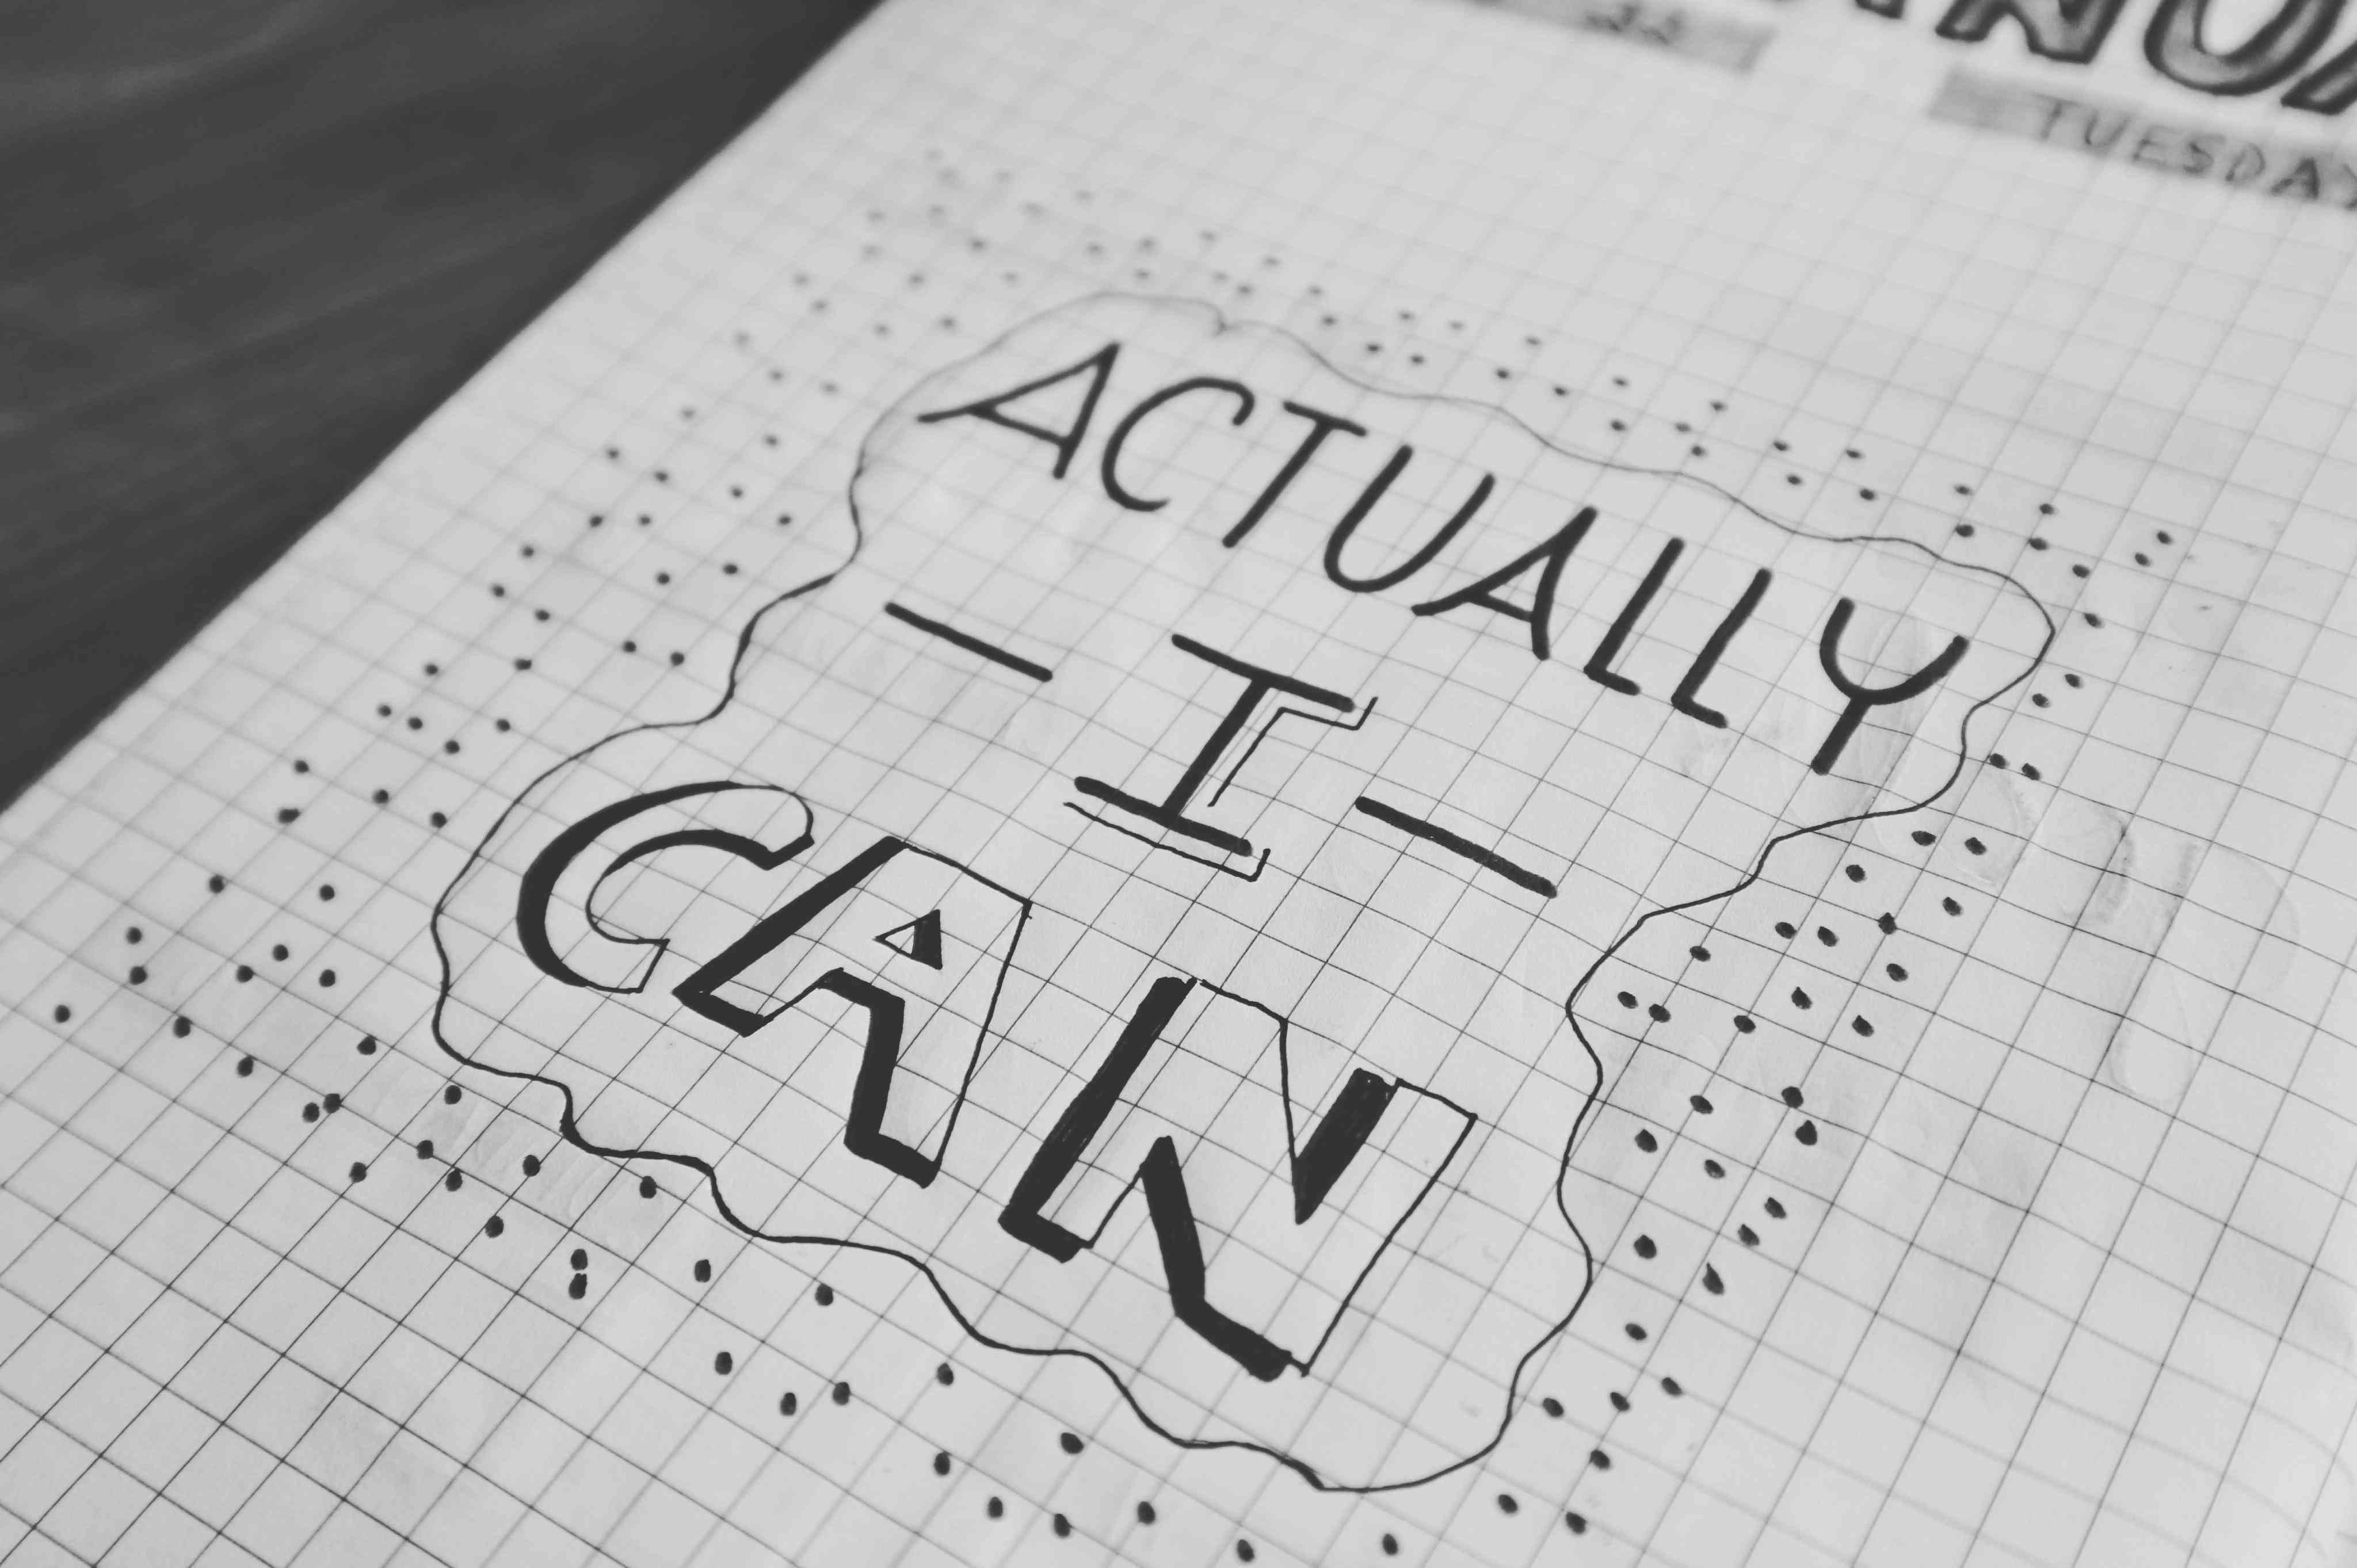 TUESDAY
ACTUALLY
— I —
CAN